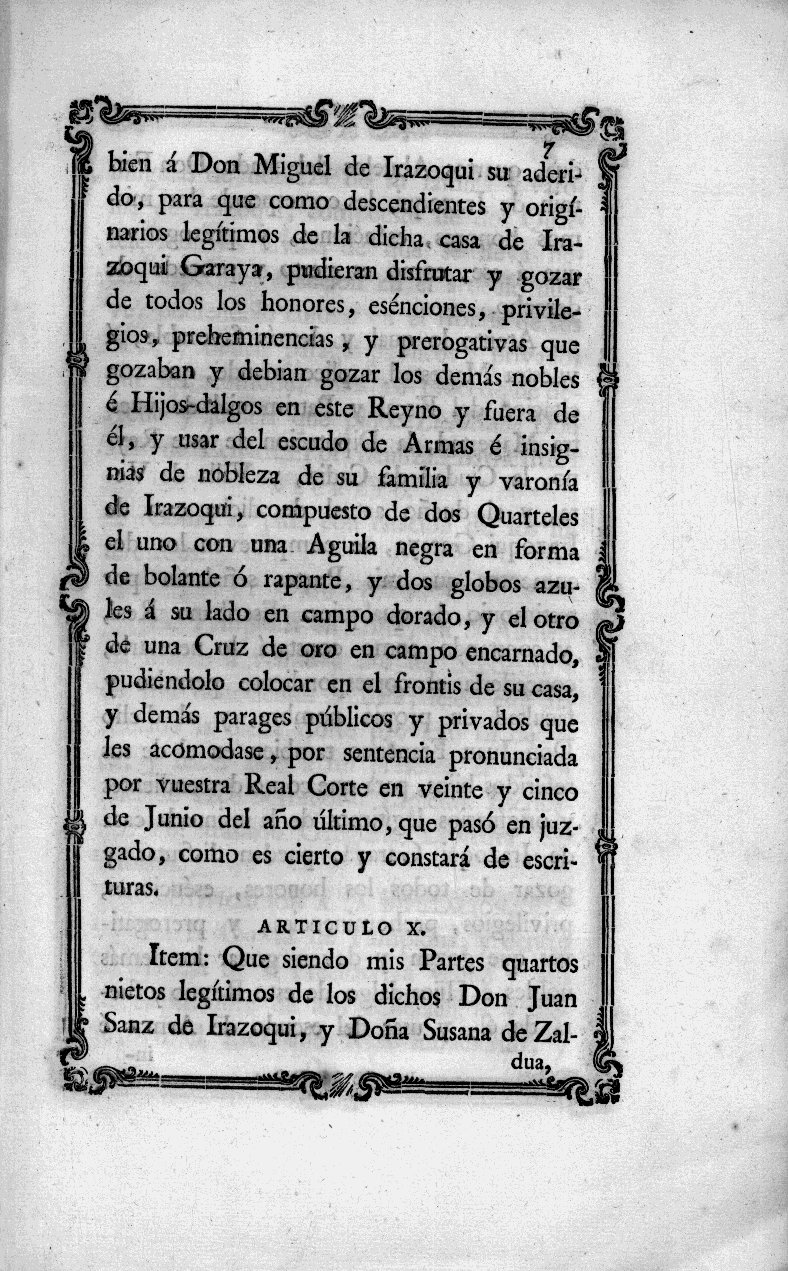 7
bien á Don Miguel de Irazoqui su aderi-
do, para que como descendientes y origí-
narios legítimos de la dicha casa de Ira-
zoqui Garaya, pudieran disfrutar y gozar
de todos los honores, esénciones, privile-
gios, preheminencias, y prerogativas que
gozaban y debian gozar los demás nobles
é Hijos-dalgos en este Reyno y fuera de
él, y usar del escudo de Armas é insig-
nias de nobleza de su familia y varonía
de Irazoqui, compuesto de dos Quarteles
el uno con una Aguila negra en forma
de bolante ó rapante, y dos globos azu-
les á su lado en campo dorado, y el otro
de una Cruz de oro en campo encarnado,
pudiendolo colocar en el frontis de su casa,
y demás parages públicos y privados que
les acomodase, por sentencia pronunciada
por vuestra Real Corte en veinte y cinco
de Junio del año último, que pasó en juz-
gado, como es cierto y constará de escri-
turas.
ARTICULO X.
Item: Que siendo mis Partes quartos
nietos legítimos de los dichos Don Juan
Sanz de Irazoqui, y Doña Susana de Zal-
dua,